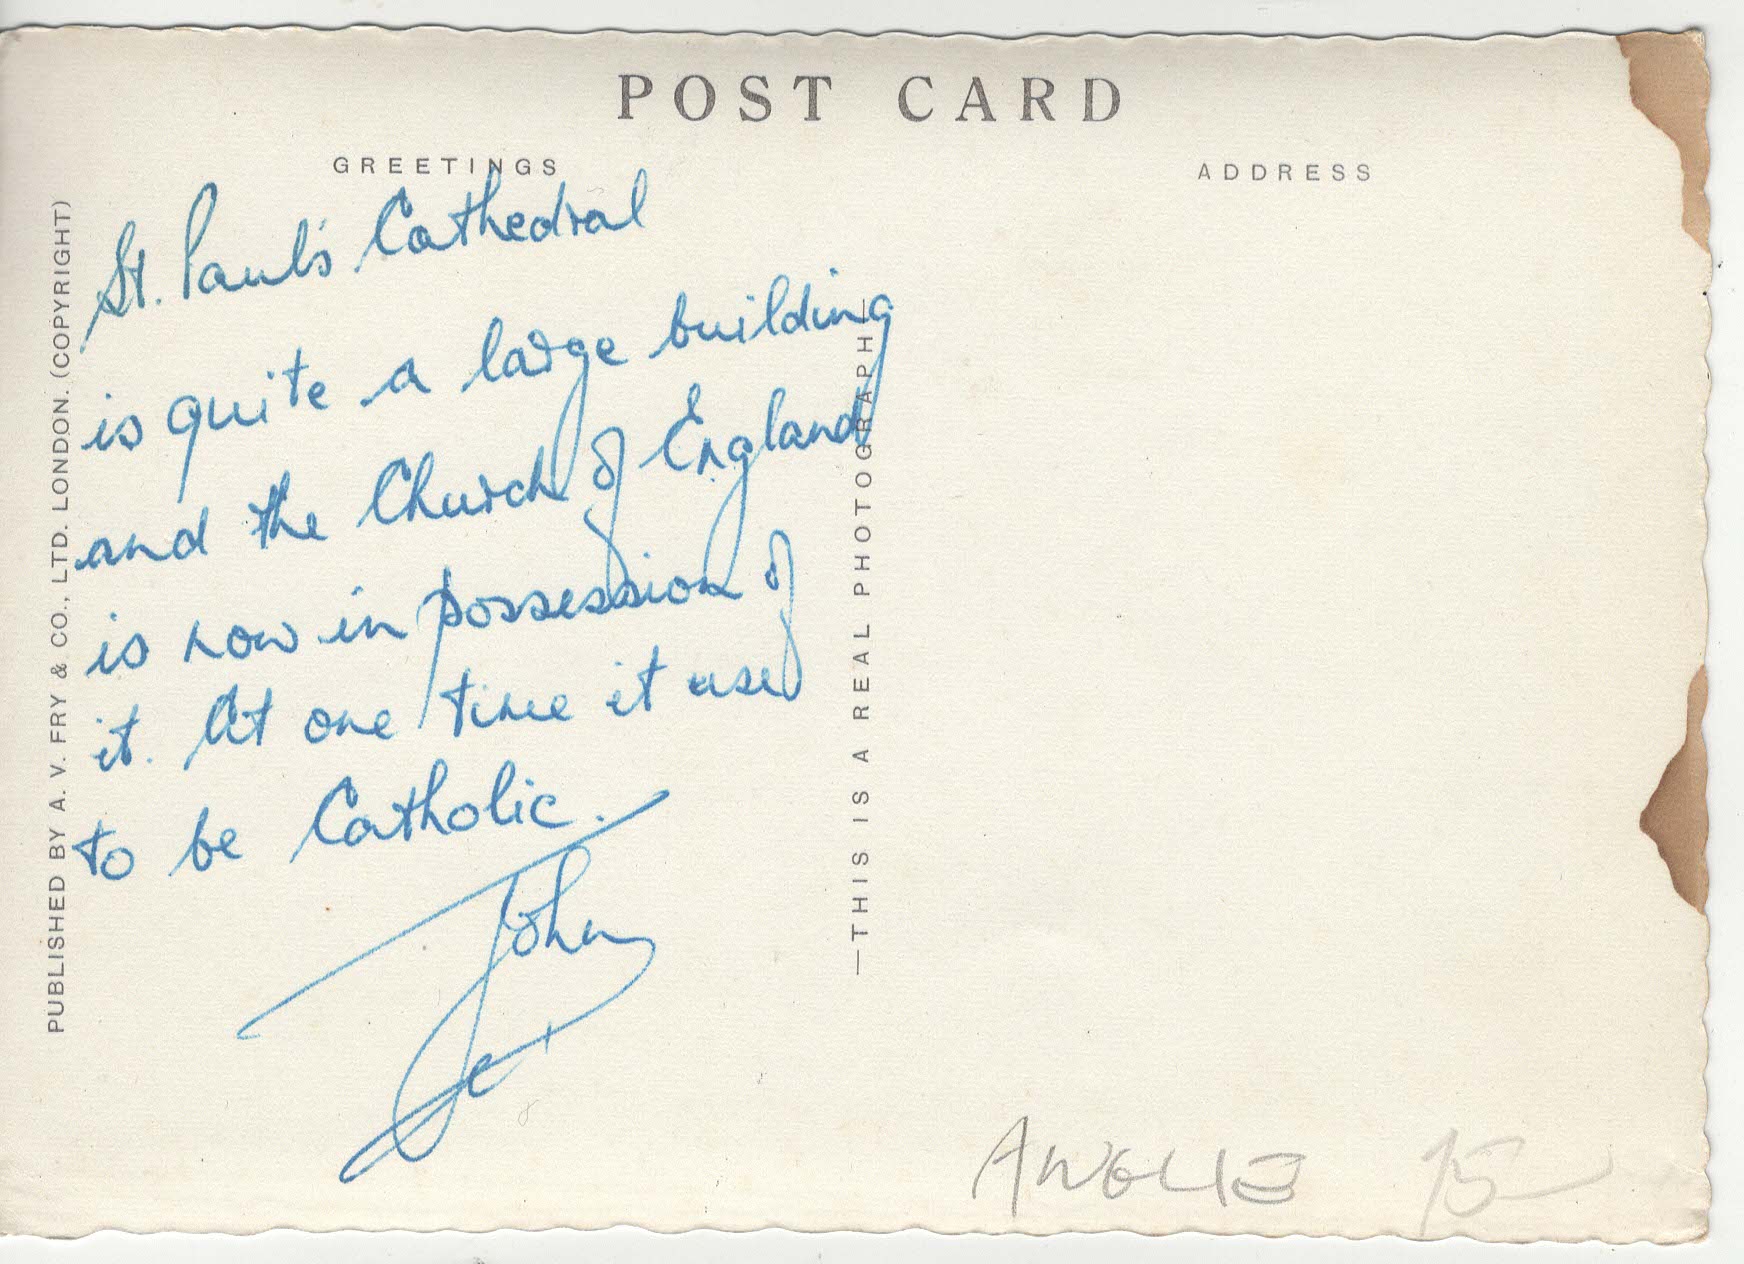 POST CARD
GREETINGS
ADDRESS
St. Paul's Cathedral
is quite a large building
and the Church of England
is now in possession of
it. At one time it used
to be Catholic.
John
PUBLISHED BY A. V. FRY & CO., LTD. LONDON. (COPYRIGHT)
—THIS IS A REAL PHOTOGRAPH—
ANGLIE 15